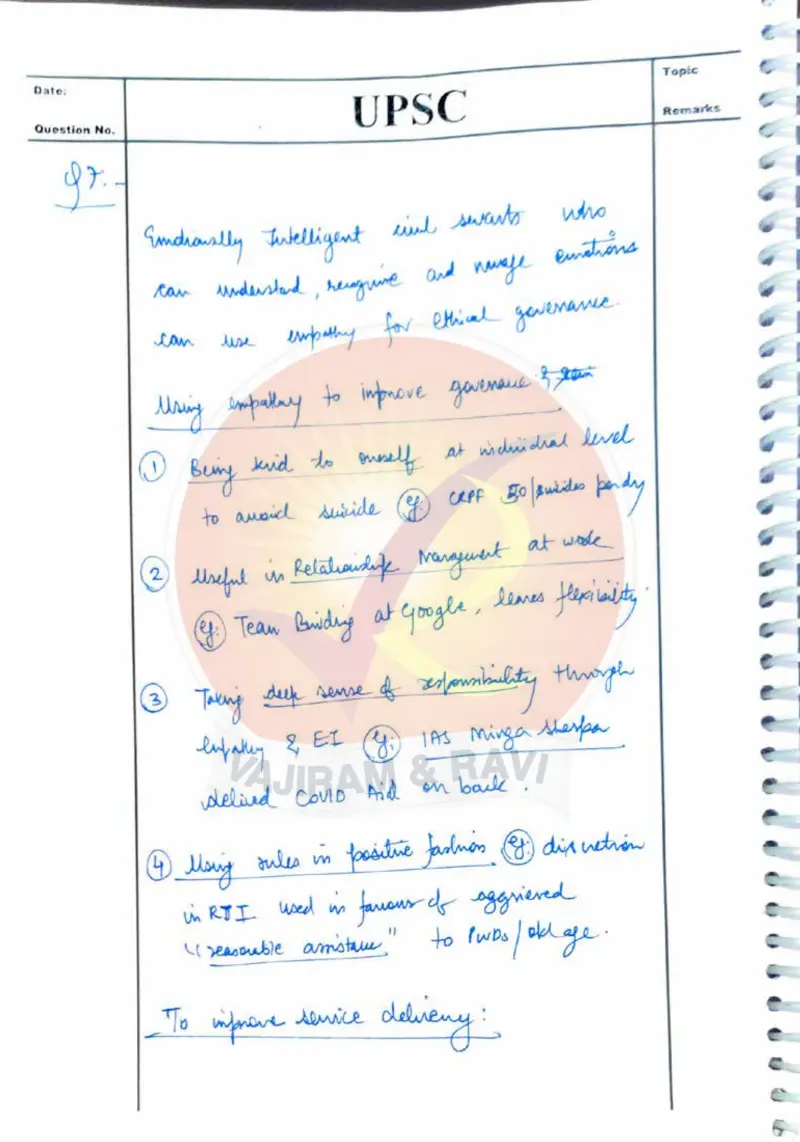 Date:
Question No.
UPSC
Topic
Remarks
Q7.-
Emotionally Intelligent civil servants who
can understand, recognise and manage emotions
can use empathy for ethical governance.
Using empathy to improve governance
① Being kind to oneself at individual level
to avoid suicide eg: CRPF 50/suicides
② Useful in Relationship Management at work
eg: Team Building at Google, leaves flexibility.
③ Taking deep sense of responsibility through
empathy & EI eg: IAS Minga Sherpa
delived COVID Aid on back.
④ Using rules in positive fashion eg: discretion
in RTI used in favour of aggrieved
"reasonable assistance" to PWDs/old age.
To improve service delivery:
VAJIRAM & RAVI